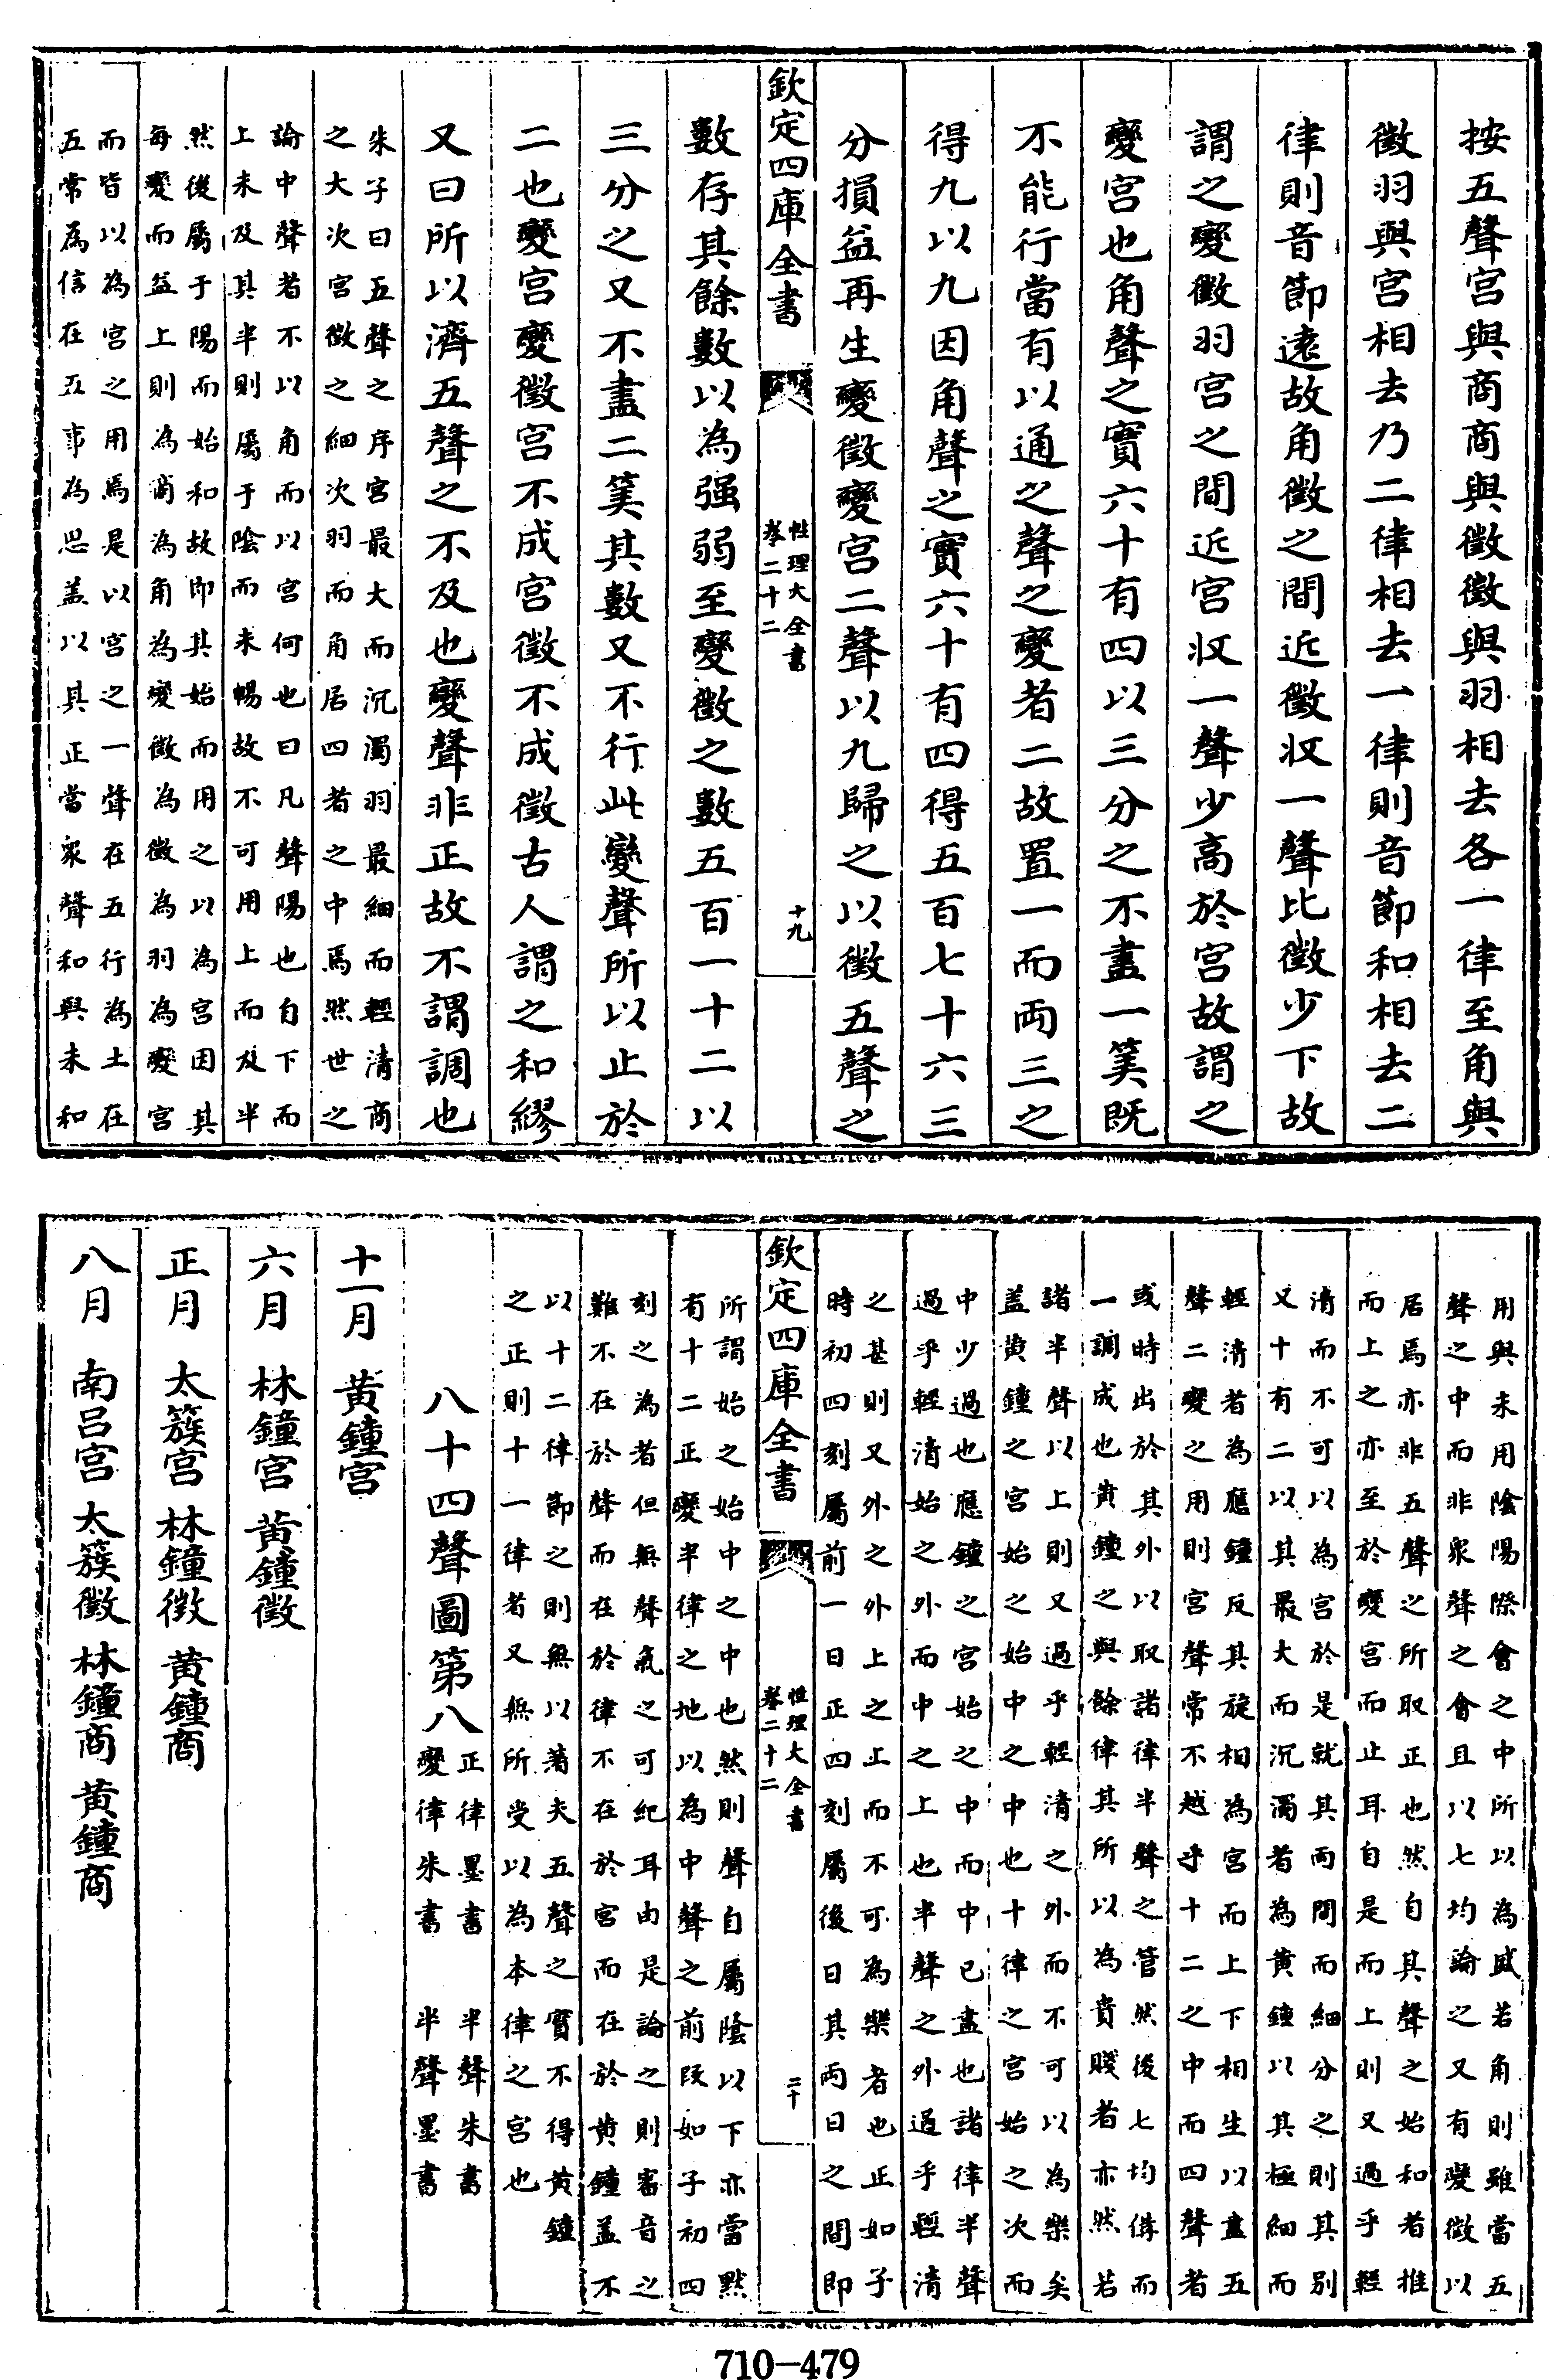 按五聲宮與商商與徵徵與羽相去各一律至角與
徵羽與宮相去乃二律相去一律則音節和相去二
律則音節遠故角徵之間近徵收一聲比徵少下故
謂之變徵羽宮之間近宮收一聲少高於宮故謂之
變宮也角聲之實六十有四以三分之不盡一筭既
不能行當有以通之聲之變者二故置一而兩三之
得九以九因角聲之實六十有四得五百七十六三
分損益再生變徵變宮二聲以九歸之以徵五聲之
欽定四庫全書
性理大全書
卷二十二
十九
數存其餘數以為强弱至變徵之數五百一十二以
三分之又不盡二筭其數又不行此變聲所以止於
二也變宮變徵宮不成宮徵不成徵古人謂之和繆
又曰所以濟五聲之不及也變聲非正故不謂調也
朱子曰五聲之序宮最大而沉濁羽最細而輕清商
之大次宮徵之細次羽而角居四者之中焉然世之
論中聲者不以角而以宮何也曰凡聲陽也自下而
上未及其半則屬于陰而未暢故不可用上而及半
然後屬于陽而始和故即其始而用之以為宮因其
每變而益上則為商為角為變徵為徵為羽為變宮
而皆以為宮之用焉是以宮之一聲在五行為土在
五常為信在五事為思盖以其正當衆聲和與未和
用與未用陰陽際會之中所以為盛若角則雖當五
聲之中而非衆聲之會且以七均論之又有變徵以
居焉亦非五聲之所取正也然自其聲之始和者推
而上之亦至於變宮而止耳自是而上則又過乎輕
清而不可以為宮於是就其兩間而細分之則其别
又十有二以其最大而沉濁者為黄鐘以其極細而
輕清者為應鐘反其旋相為宮而上下相生以盡五
聲二變之用則宮聲常不越乎十二之中而四聲者
或時出於其外以取諸律半聲之管然後七均備而
一調成也黄鐘之與餘律其所以為貴賤者亦然若
諸半聲以上則又過乎輕清之外而不可以為樂矣
盖黄鐘之宮始之始中之中也十律之宮始之次而
中少過也應鐘之宮始之中而中已盡也諸律半聲
過乎輕清始之外而中之上也半聲之外過乎輕清
之甚則又外之外上之上而不可為樂者也正如子
時初四刻屬前一日正四刻屬後日其兩日之間即
欽定四庫全書
性理大全書
卷二十二
二十
所謂始之始中之中也然則聲自屬陰以下亦當黙
有十二正變半律之地以為中聲之前段如子初四
刻之為者但無聲氣之可紀耳由是論之則審音之
難不在於聲而在於律不在於宮而在於黄鐘盖不
以十二律節之則無以著夫五聲之實不得黄鐘
之正則十一律者又無所受以為本律之宮也
八十四聲圖第八
正律墨書 半聲朱書
變律朱書 半聲墨書
十一月 黄鐘宮
六月 林鐘宮 黄鐘徵
正月 太簇宮 林鐘徵 黄鐘商
八月 南呂宮 太簇徵 林鐘商 黄鐘商
710-479